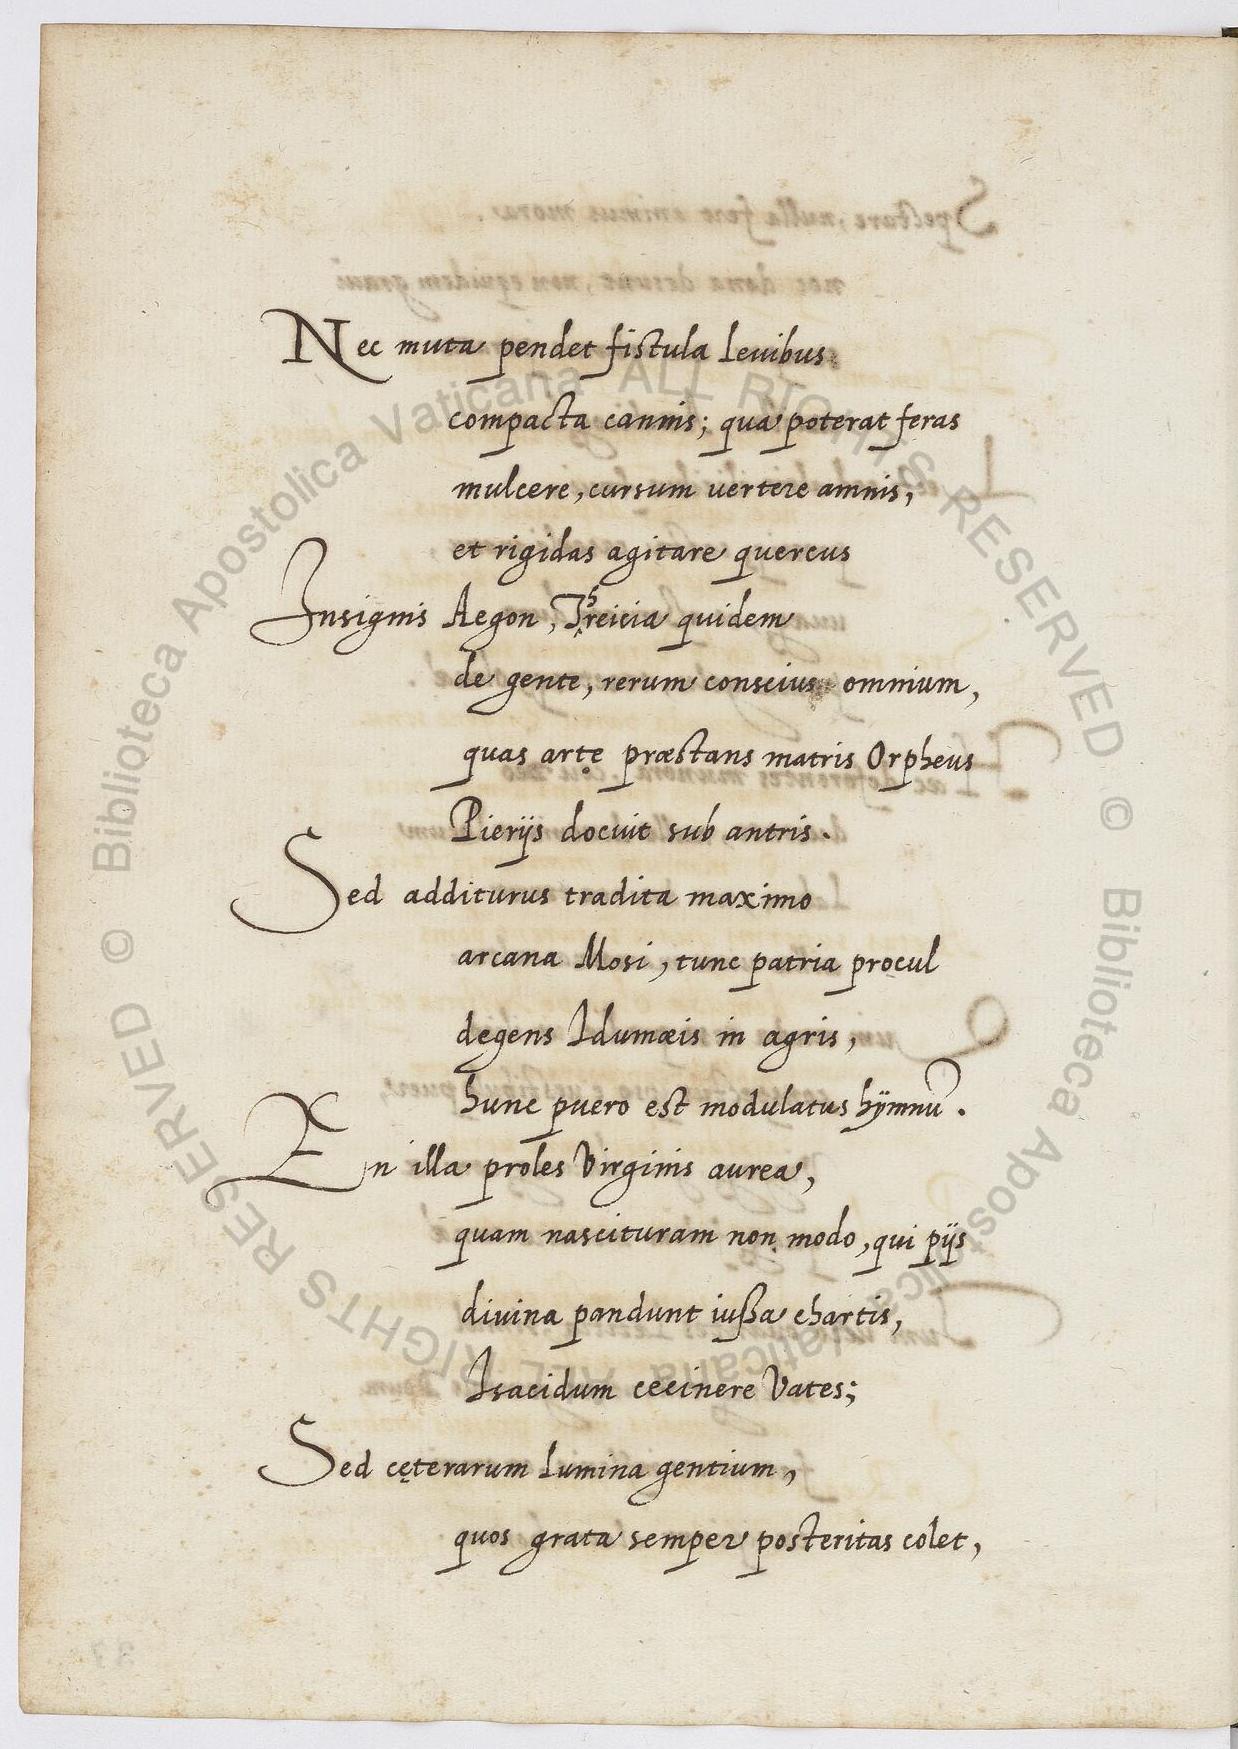 Nec muta pendet fistula leuibus
compacta cannis; qua poterat feras
mulcere, cursum vertere amnis,
et rigidas agitare quercus
Insignis Aegon, Threicia quidem
de gente, rerum conscius omnium,
quas arte præstans matris Orpheus
Pierijs docuit sub antris.
Sed additurus tradita maximo
arcana Mosi, tunc patria procul
degens Idumæis in agris,
hunc puero est modulatus hÿmnū.
En illa proles Virginis aurea,
quam nascituram non modo, qui pijs
diuina pandunt iußa chartis,
Isacidum cecinere Vates;
Sed cęterarum lumina gentium,
quos grata semper posteritas colet,
© Biblioteca Apostolica Vaticana ALL RIGHTS RESERVED
© Biblioteca Apostolica Vaticana ALL RIGHTS RESERVED